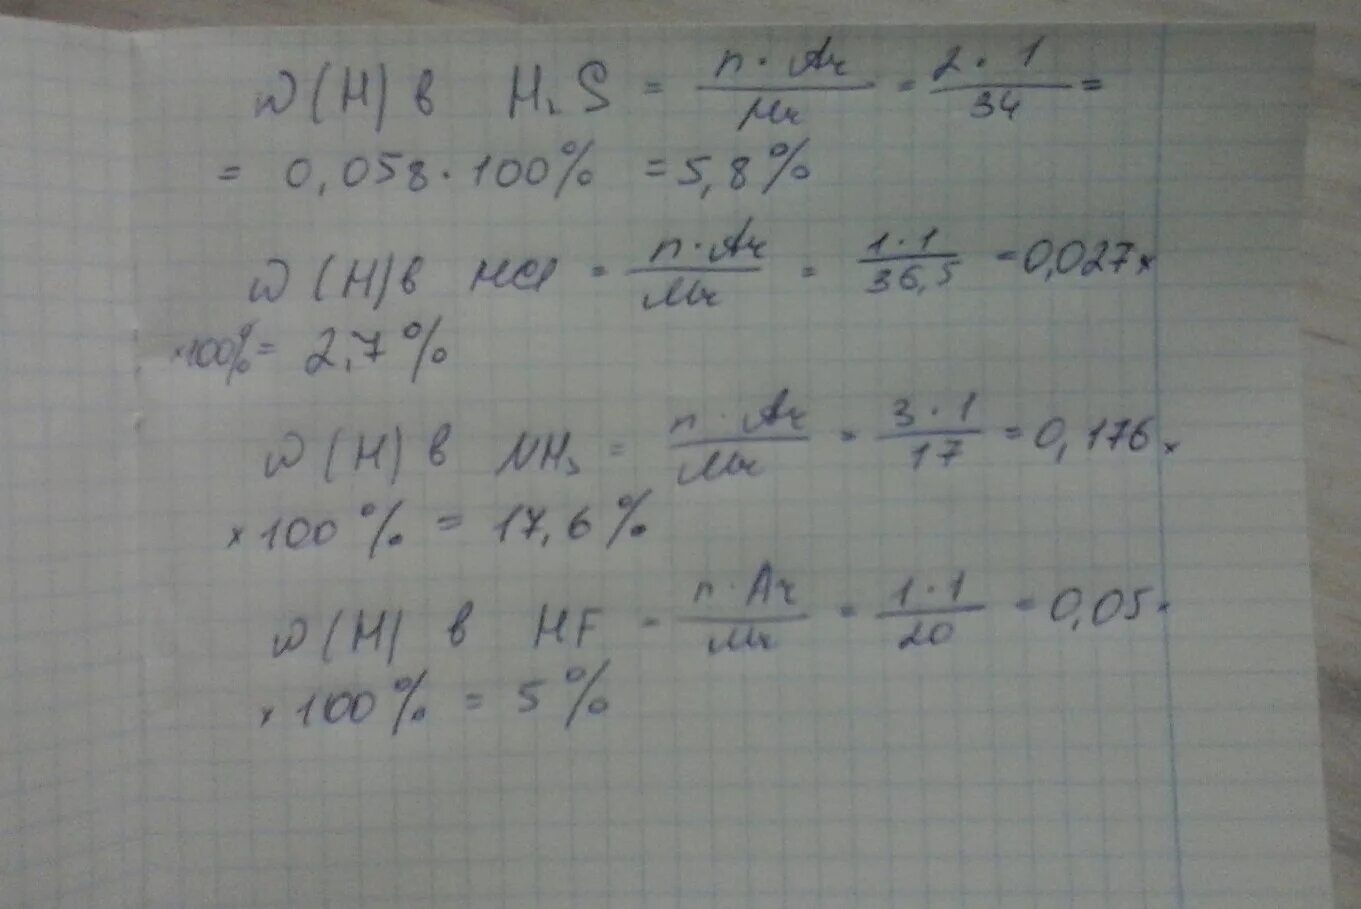 ω(H) в H₂S = n·Ar/Mr = 2·1/34 =
= 0,058·100% = 5,8%
ω(H) в HCl = n·Ar/Mr = 1·1/36,5 = 0,027×
×100% = 2,7%
ω(H) в NH₃ = n·Ar/Mr = 3·1/17 = 0,176×
×100% = 17,6%
ω(H) в HF = n·Ar/Mr = 1·1/20 = 0,05×
×100% = 5%